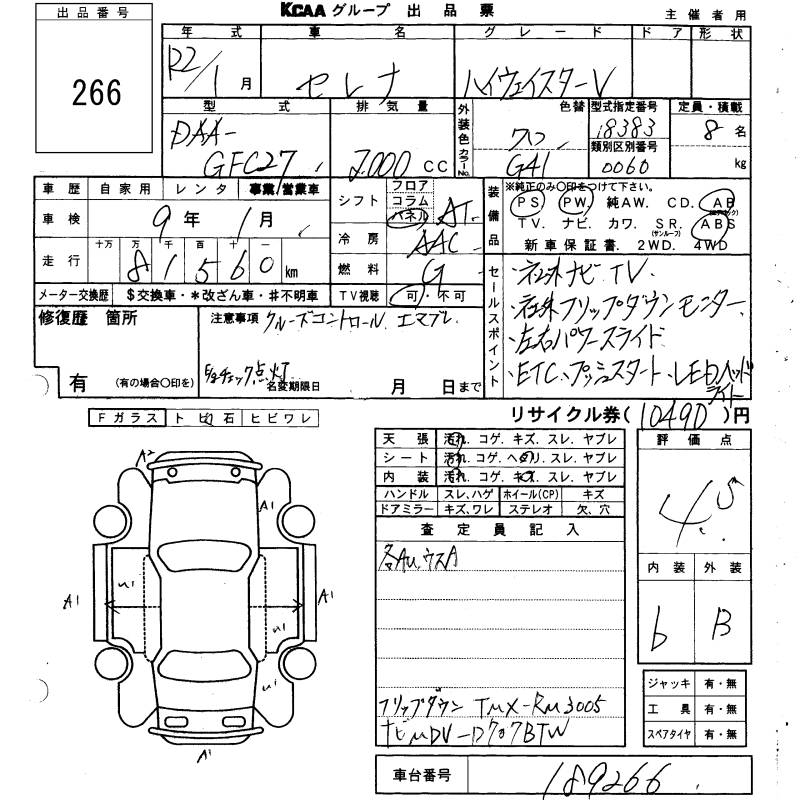 出品番号
266
KCAA グループ 出品票
主催者用
年式 車名 グレード ドア 形状
R2/1月 セレナ ハイウェイスターV
型式 排気量 外装色 色替 型式指定番号 定員・積載
DAA-GFC27 2,000 CC カラーNo. G41 18383 8名
類別区別番号
0060 kg
車歴 自家用 レンタ 事業/営業車
車検 9年1月
走行 十万 万 千 百 十 一
81560km
メーター交換歴 $交換車・*改ざん車・#不明車
シフト フロア コラム パネル AT
冷房 AAC
燃料 G
TV視聴 可・不可
装備品
※純正のみ〇印をつけて下さい。
PS PW 純AW. CD. AB(エアバック)
TV. ナビ. カワ. SR.(サンルーフ) ABS
新車保証書. 2WD. 4WD
セールスポイント
・社外ナビ TV.
・社外フリップダウンモニター.
・左右パワースライド
・ETC、プッシュスタート・LEDヘッドライト
修復歴 箇所
有 (有の場合〇印を)
注意事項 クルーズコントロール エマブレ
チェック点灯
名変期限日 月 日まで
リサイクル券(10490)円
Fガラス トビ石 ヒビワレ
天張 汚れ. コゲ. キズ. スレ. ヤブレ
シート 汚れ. コゲ. ヘタリ. スレ. ヤブレ
内装 汚れ. コゲ. キズ. スレ. ヤブレ
ハンドル スレ、ハゲ ホイール(CP) キズ
ドアミラー キズ、ワレ ステレオ 欠、穴
評価点
4.5
内装 外装
b B
査定員記入
各AU.ウスA
フリップダウン TMX-RM3005
ナビMDV-D707BTW
A2
A1
U1
A1
A1
U1
U1
A1
ジャッキ 有・無
工具 有・無
スペアタイヤ 有・無
車台番号 189266